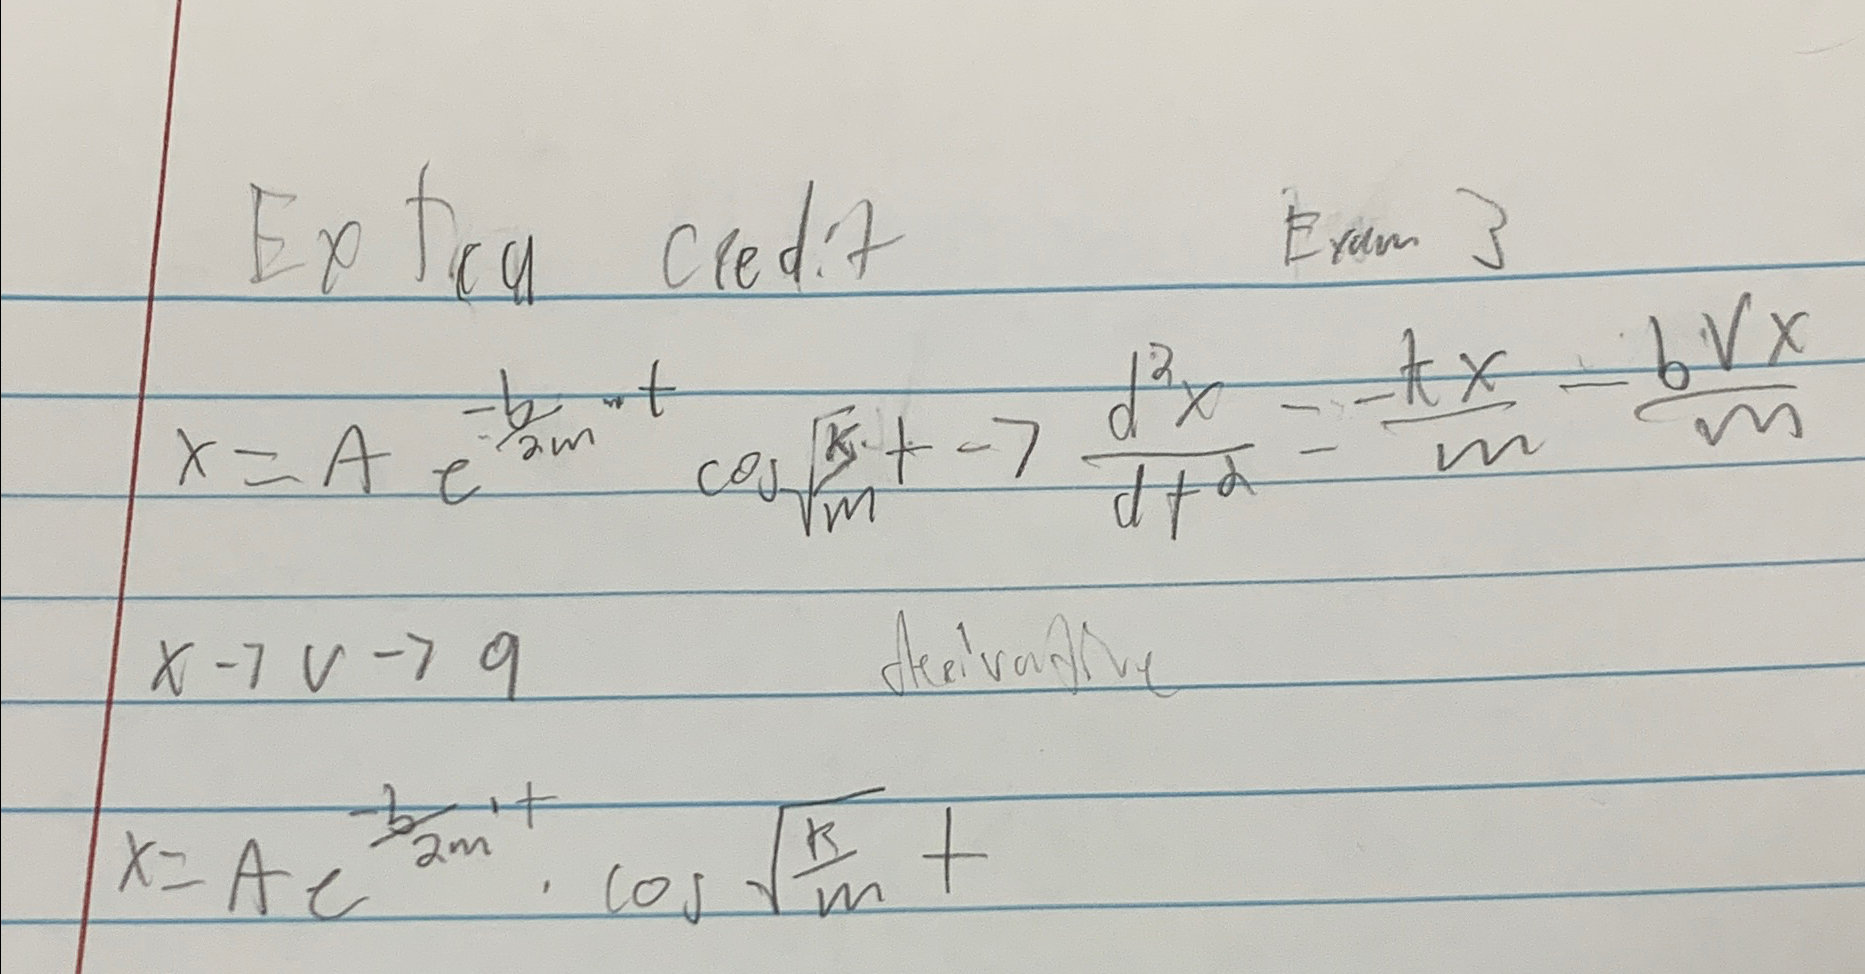 Extra credit Exam 3
x = A e^(-b/2m · t) cos √(k/m) t -> d²x/dt² = -kx/m - bVx/m
x -> v -> a derivative
x = A e^(-b/2m · t) · cos √(k/m) t